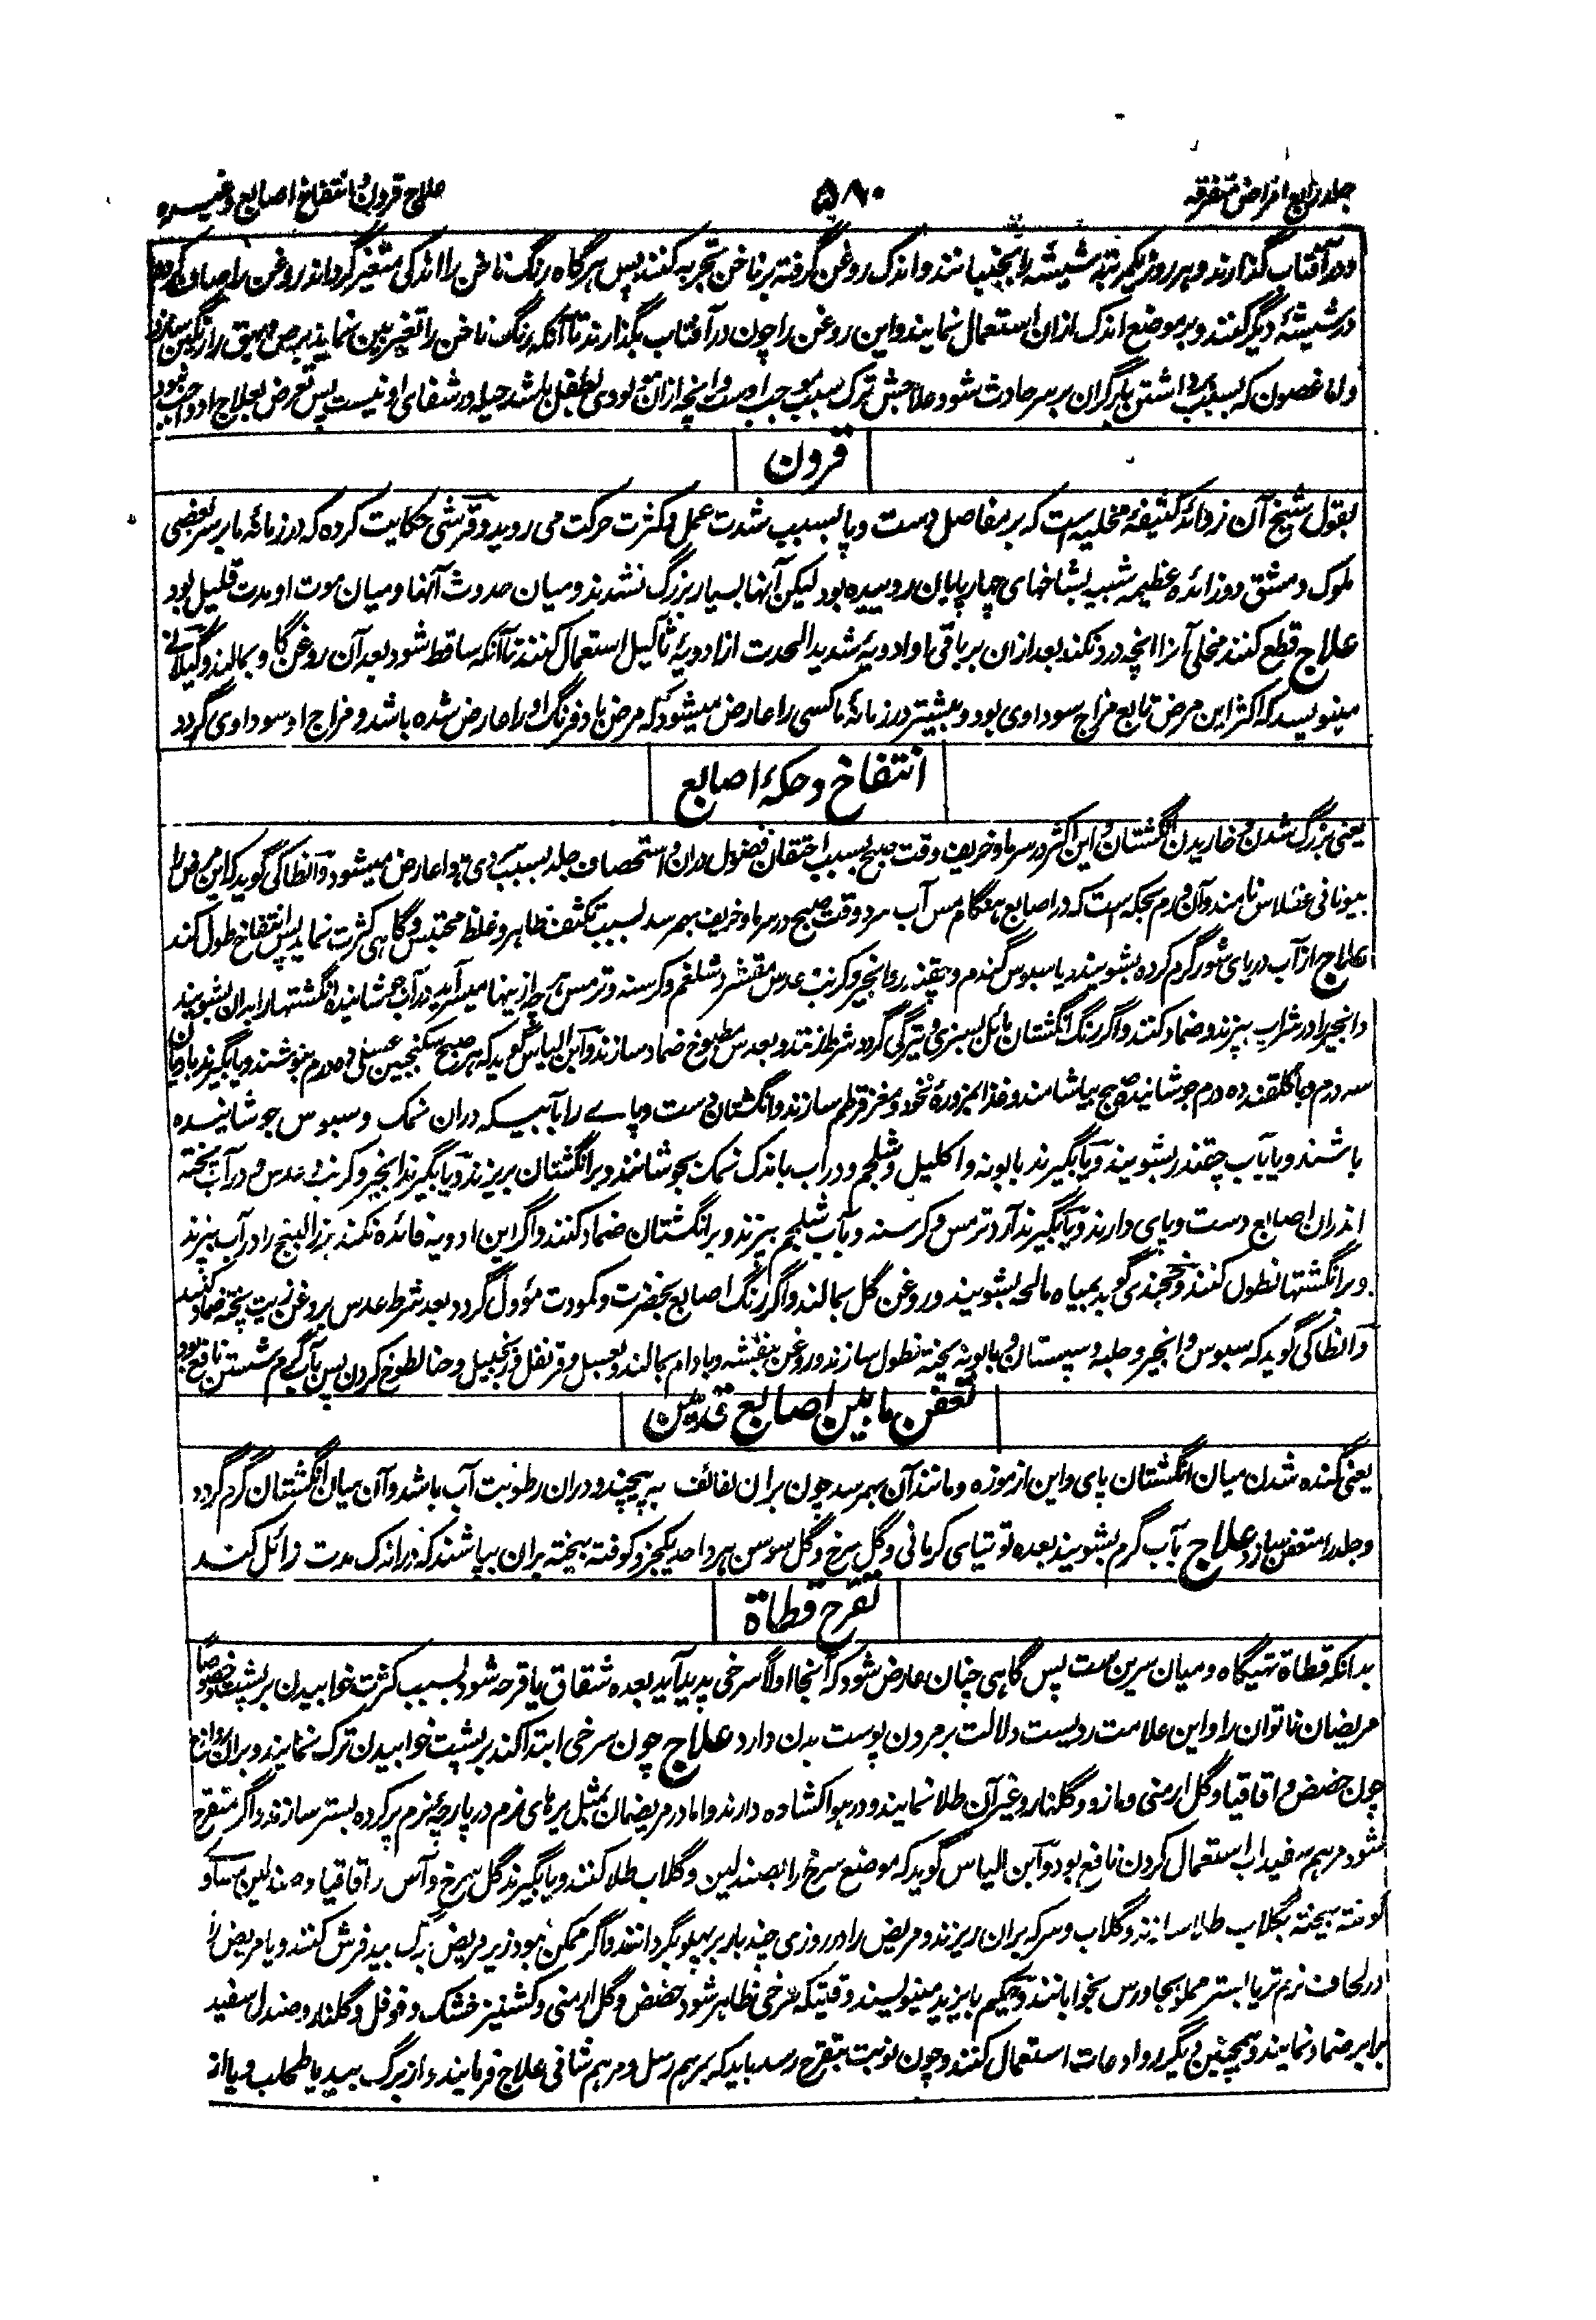 جلد رابع امراض متفرقه
۵۸۰
علاج قرون و انتفاخ اصابع وغیره
در آفتاب گذارند و هر روز یکمرتبه شیشه را بجنبانند و اندک روغن گرفته بر ناخن تجربه کنند پس هرگاه رنگ ناخن را اندکی متغیر گرداند روغن را صاف کرده
در شیشهٔ دیگر کنند و بر موضع اندک ازان استعمال نمایند و این روغن را چون در آفتاب بگذارند تا آنکه رنگ ناخن را تغیر بین نماید برص و بهق را رنگین سازد
و اما غصون که بسبب برداشتن بار گران بر سر حادث شود علاجش ترک سبب موجب اوست و آنچه ازان مولودی لطفل باشد حیله در شفای او نیست پس تعرض بعلاج او واجب نبود
قرون
بقول شیخ آن زوائد کثیفهٔ مخلیه است که بر مفاصل دست و پا بسبب شدت عمل و کثرت حرکت می روید و قرشی حکایت کرده که در زمانهٔ ما بر سر بعضی
ملوک دمشق دو زائده عظیمه شبیه بشاخهای چهارپایان روییده بود لیکن آنها بسیار بزرگ نشدند و میان حدوث آنها و میان موت او مدت قلیل بود
علاج قطع کنند مخلی آنرا آنچه درد نکند بعد ازان بر باقی ماو ادویهٔ شدید الحدت از ادویهٔ ثآلیل استعمال کنند تا آنکه ساقط شود بعد آن روغن گاو بمالند و گیلانی
مینویسد که اکثر این مرض تابع مزاج سوداوی بود و بیشتر در زمانهٔ ما کسی را عارض میشود که مرض باد فرنگ او را عارض شده باشد و مزاج او سوداوی گردد
انتفاخ و حکهٔ اصابع
یعنی بزرگ شدن و خاریدن انگشتان و این اکثر در سرما و خریف وقت صبح بسبب احتقان فضول دران و استحصاف جلد بسبب سردی هوا عارض میشود و انطاکی گوید که این مرض را
بیونانی عنلاس نامند و آن ورم بحکه است که در اصابع هنگام مس آب سرد وقت صبح در سرما و خریف بهم رسد بسبب تکثف ظاهر و غلظ محتبس و گاهی کثرت نماید پس انتفاخ طول کند
علاج از آب دریای شور گرم کرده بشویند و یا سبوس گندم و چقندر و انجیر و کرنب عدس مقشر و شلغم و کرسنه و ترمس هر چه از ینها میسر آید در آب جوشانیده انگشتها را بدان بشویند
و انجیر را در شراب بپزند و ضماد کنند و اگر رنگ انگشتان مائل بسبزی و تیرگی گردد شرط زنند و بعدس مطبوخ ضماد سازند و ابن الیاس گوید که هر صبح سکنجبین عسلی ده درم بنوشند و یا بگیرند بادیان
سه درم و با گلقند ده درم جوشانیده صبح بیاشامند و غذا مزورهٔ نخود و مغز قرطم سازند و انگشتان دست و پاے را بآبیکه دران نمک و سبوس جوشانیده
باشند و یا بآب چقندر بشویند و یا بگیرند بابونه و اکلیل و شلجم و در آب با اندک نمک بجوشانند و بر انگشتان بریزند و یا بگیرند انجیر و کرنب و عدس و در آب پخته
اندران اصابع دست و پای دارند و یا بگیرند آرد ترمس و کرسنه و بآب شلجم بپزند و بر انگشتان ضماد کنند و اگر این ادویه فائده نکند بزر البنج را در آب بپزند
و بر انگشتها نطول کنند و خجندی گوید بمیاه مالحه بشویند و روغن گل بمالند و اگر رنگ اصابع بخضرت و کمودت مؤول گردد بعد شرط عدس بروغن زیت پخته ضماد کنند
و انطاکی گوید که سبوس و انجیر و حلبه و سپستان و بابونه پخته نطول سازند و روغن بنفشه و بادام بمالند و بعسل و قرنفل و زنجبیل و حنا لطوخ کردن پس بآب گرم شستن نافع بود
تعفن مابین اصابع قدمین
یعنی گنده شدن میان انگشتان پای و این از موزه و مانند آن بهم رسد چون بران لفائف بپیچند و دران رطوبت آب باشد و آن میان انگشتان گرم گردد
و جلد را متعفن سازد علاج بآب گرم بشویند بعده توتیای کرمانی و گل سرخ و گل سوسن هر واحد یکجز و کوفته بیخته بران بپاشند که در اندک مدت زائل کند
تقرح قطاة
بدانکه قطاة تهیگاه و میان سرین ست پس گاهی چنان عارض شود که آنجا اولاً سرخی پدید آید بعده شقاق یا قرحه شود بسبب کثرت خوابیدن بر پشت خصوصاً
مریضان ناتوان را و این علامت ردیست دلالت بر مردن پوست بدن دارد علاج چون سرخی ابتدا کند بر پشت خوابیدن ترک نمایند و بران روادع
چون حضض و اقاقیا و گل ارمنی و مازو و گلنار و غیر آن طلا نمایند و در هوا کشاده دارند و اما در مریضان بمثل پرهای نرم در پارچهٔ نرم پر کرده بستر سازند و اگر متقرح
شود مرهم سفیداب استعمال کردن نافع بود و ابن الیاس گوید که موضع سرخ را بصندلین و گلاب طلا کنند و یا بگیرند گل سرخ و آس و اقاقیا و صندلین مساوے
کوفته بیخته بگلاب طلا سازند و گلاب و سرکه بران ریزند و مریض را در روزی چند بار بر پهلو بگردانند و اگر ممکن بود زیر مریض برگ بید فرش کنند و یا مریض را
در لحاف نرم تر یا بستر مملو بجاورس بخوابانند و حکیم بایزید مینویسند وقتیکه سرخی ظاهر شود حضض و گل ارمنی و کشنیز خشک و فوفل و گلنار و صندل سفید
برابر ضماد نمایند و همچنین دیگر روادعات استعمال کنند و چون نوبت بتقرح رسد باید که بمرهم رسل و مرهم شافی علاج فرمایند و از برگ بید یا طحلب و یا از